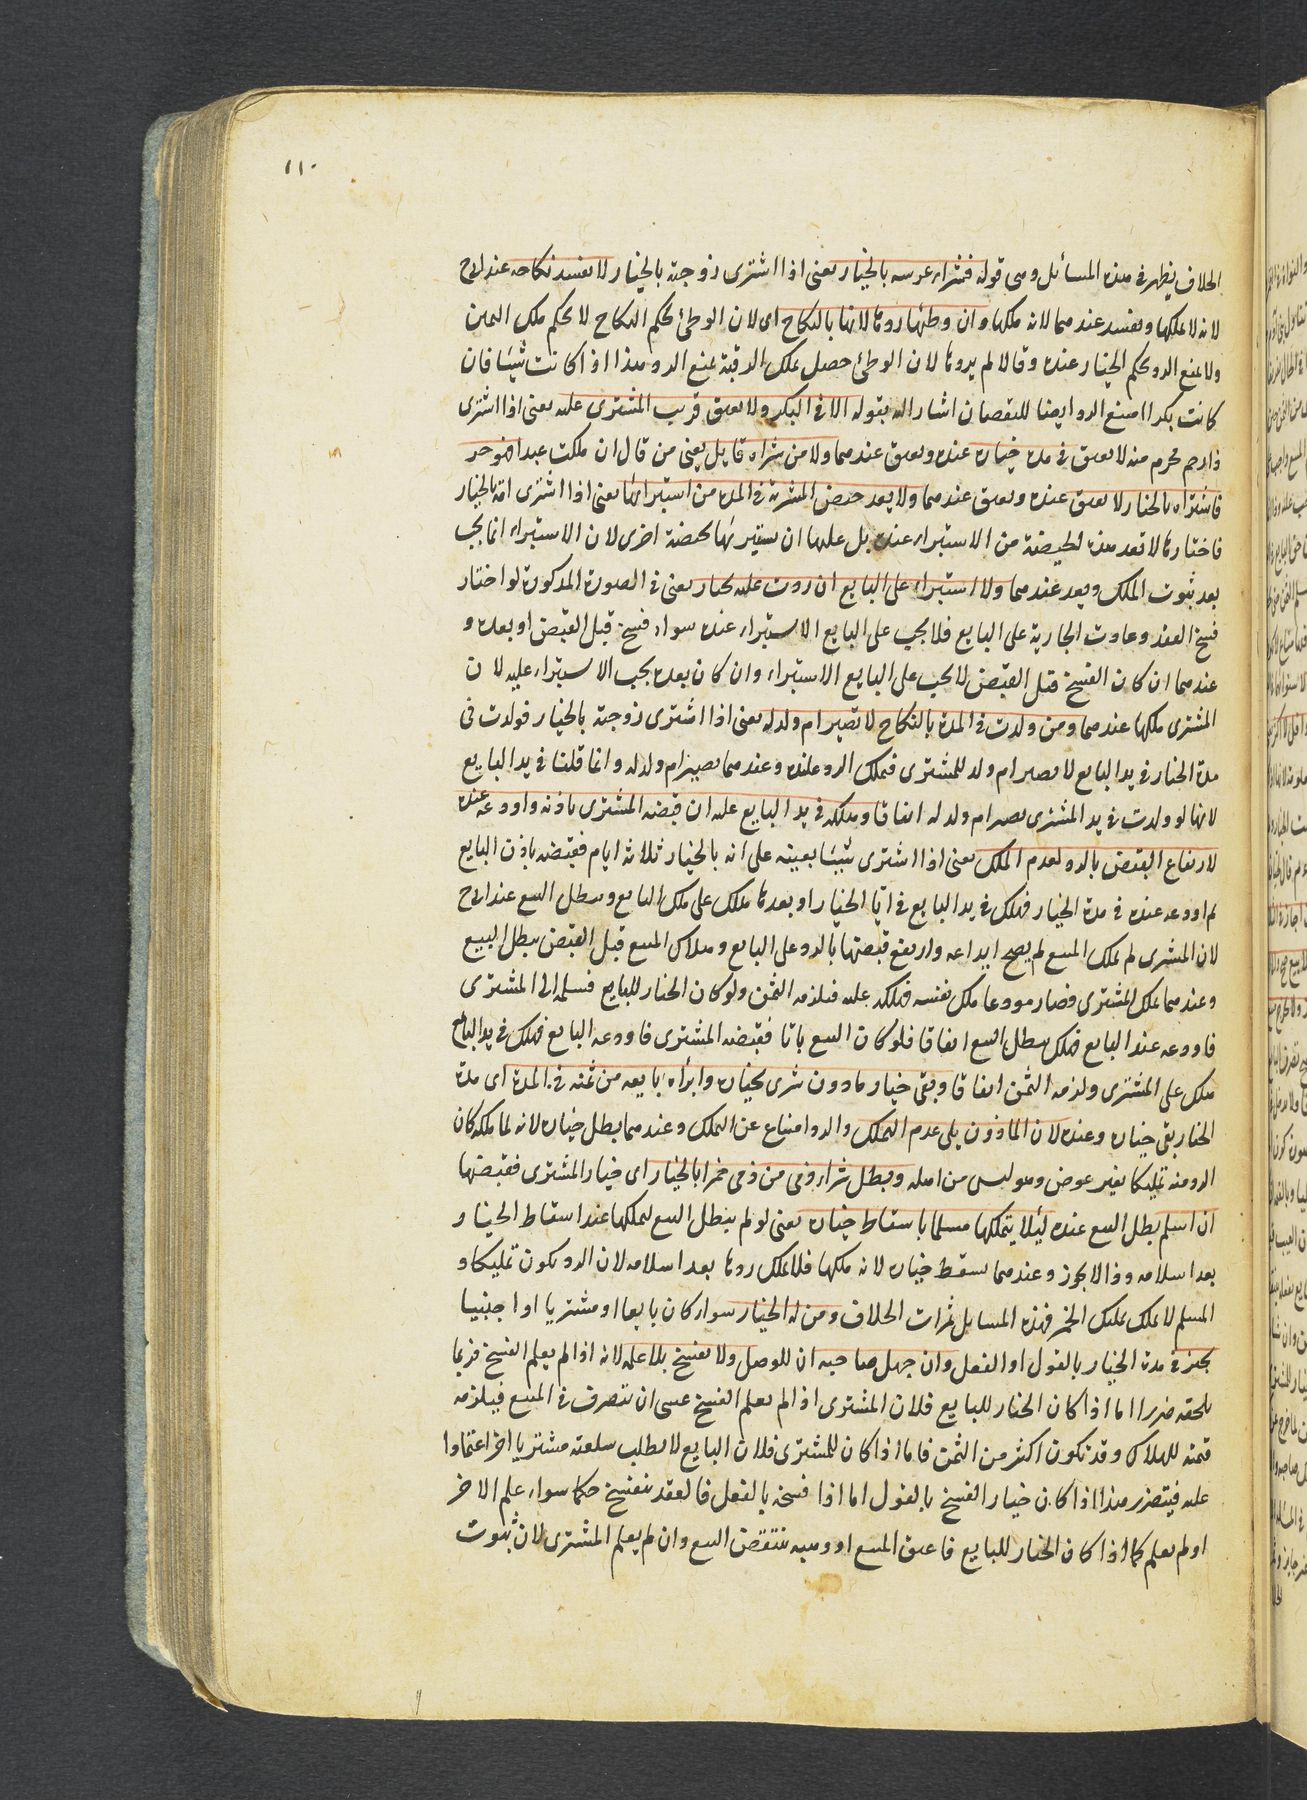 ١١٠
الخلاف يظهر في هذه المسائل وهي قوله فشراء عرسه بالخيار يعني اذا اشترى زوجته بالخيار لا يفسد نكاحه عند ابي ح
لانه لا يملكها ويفسد عندهما لانه ملكها وان وطئها ردها لانها بالنكاح اي لان الوطئ بحكم النكاح لا بحكم ملك اليمين
ولا يمنع الرد بحكم الخيار عنده وقالا لم يردها لان الوطئ حصل بملك الرقبة يمنع الرد وهذا اذا كانت ثيبا فان
كانت بكرا امتنع الرد ايضا للنقصان اشار اليه بقوله الا في البكر ولا يعتق قريب المشترى عليه يعني اذا اشترى
ذا رحم محرم منه لا يعتق في مدة خياره عنده ويعتق عندهما ولا من شراه قايل يعني من قال ان ملكت عبدا فهو حر
فاشتراه بالخيار لا يعتق عنده ويعتق عندهما ولا يعد حيض المشرية في المدة من استبرائها يعني اذا اشترى امة بالخيار
فاختارها لا تعد هذه الحيضة من الاستبراء عنده بل عليها ان يستبرئها بحيضة اخرى لان الاستبراء انما يجب
بعد ثبوت الملك ويعد عندهما ولا استبراء على البايع ان ردت عليه بخيار يعني في الصورة المذكورة لو اختار
فسخ العقد وعادت الجارية على البايع فلا يجب على البايع الاستبراء عنده سواء فسخ قبل القبض او بعده و
عندهما ان كان الفسخ قبل القبض لا يجب على البايع الاستبراء وان كان بعده يجب الاستبراء عليه لان
المشترى ملكها عندهما ومن ولدت في المدة بالنكاح لا تصير ام ولد له يعني اذا اشترى زوجته بالخيار فولدت في
مدة الخيار في يد البايع لا تصير ام ولد للمشترى فيملك الرد عليه وعندهما تصير ام ولد له وانما قلنا في يد البايع
لانها لو ولدت في يد المشترى تصير ام ولد له اتفاقا وهلكه في يد البايع عليه ان قبضه المشترى باذنه واودعه عنده
لارتفاع القبض بالرد لعدم الملك يعني اذا اشترى شيئا بعينه على انه بالخيار ثلاثة ايام فقبضه باذن البايع
ثم اودعه عنده في مدة الخيار فهلك في يد البايع في ايام الخيار او بعدها هلك على ملك البايع وبطل البيع عند ابي ح
لان المشترى لم يملك المبيع لم يصح ايداعه وارتفع قبضتها بالرد على البايع وهلاك المبيع قبل القبض يبطل البيع
وعندهما يملك المشترى فصار مودعا ملك نفسه فهلكه عليه فيلزمه الثمن ولو كان الخيار للبايع فسلمه الى المشترى
فاودعه عند البايع فهلك يبطل البيع اتفاقا فلو كان البيع باتا فقبضه المشترى فاودعه البايع فهلك في يد البايع
هلك على المشترى ولزمه الثمن اتفاقا وبقى خيار مأذون شرى بخياره وابراه بايعه من ثمنه في المدة اي مدة
الخيار بقى خياره وعنده لان الماذون يلي عدم التملك والرد امتناع عن التملك وعندهما يبطل خياره لانه لما ملكه كان
الرد منه تمليكا بغير عوض وهو ليس من اهله ويبطل شراء ذمى من ذمى خمرا بالخيار اي خيار المشترى فقبضها
ان اسلم بطل البيع عنده لئلا يتملكها مسلما باسقاط خياره يعني لو لم يبطل البيع لتملكها عند اسقاط الخيار
بعد اسلامه وذا لا يجوز وعندهما يسقط خياره لانه ملكها فلا يملك ردها بعد اسلامه لان الرد يكون تمليكا و
المسلم لا يملك تمليك الخمر فهذه المسايل ثمرات الخلاف ومن له الخيار سواء كان بايعا او مشتريا او اجنبيا
يجيز في مدة الخيار بالقول او الفعل وان جهل صاحبه ان للوصل ولا يفسخ بلا علمه لانه اذا لم يعلم الفسخ فربما
يلحقه ضرر اما اذا كان الخيار للبايع فلان المشترى اذا لم يعلم الفسخ عسى ان يتصرف في المبيع فيلزمه
قيمته للهلاك وقد تكون اكثر من الثمن فاما اذا كان للمشترى فلان البايع لا يطلب سلعته مشتريا اخر اعتمادا
عليه فيتضرر هذا اذا كان خيار الفسخ بالقول اما اذا فسخه بالفعل فالعقد ينفسخ حكما سواء علم الاخر
او لم يعلم كما اذا كان الخيار للبايع فاعتق المبيع او وهبه ينتقض البيع وان لم يعلم المشترى لان ثبوت